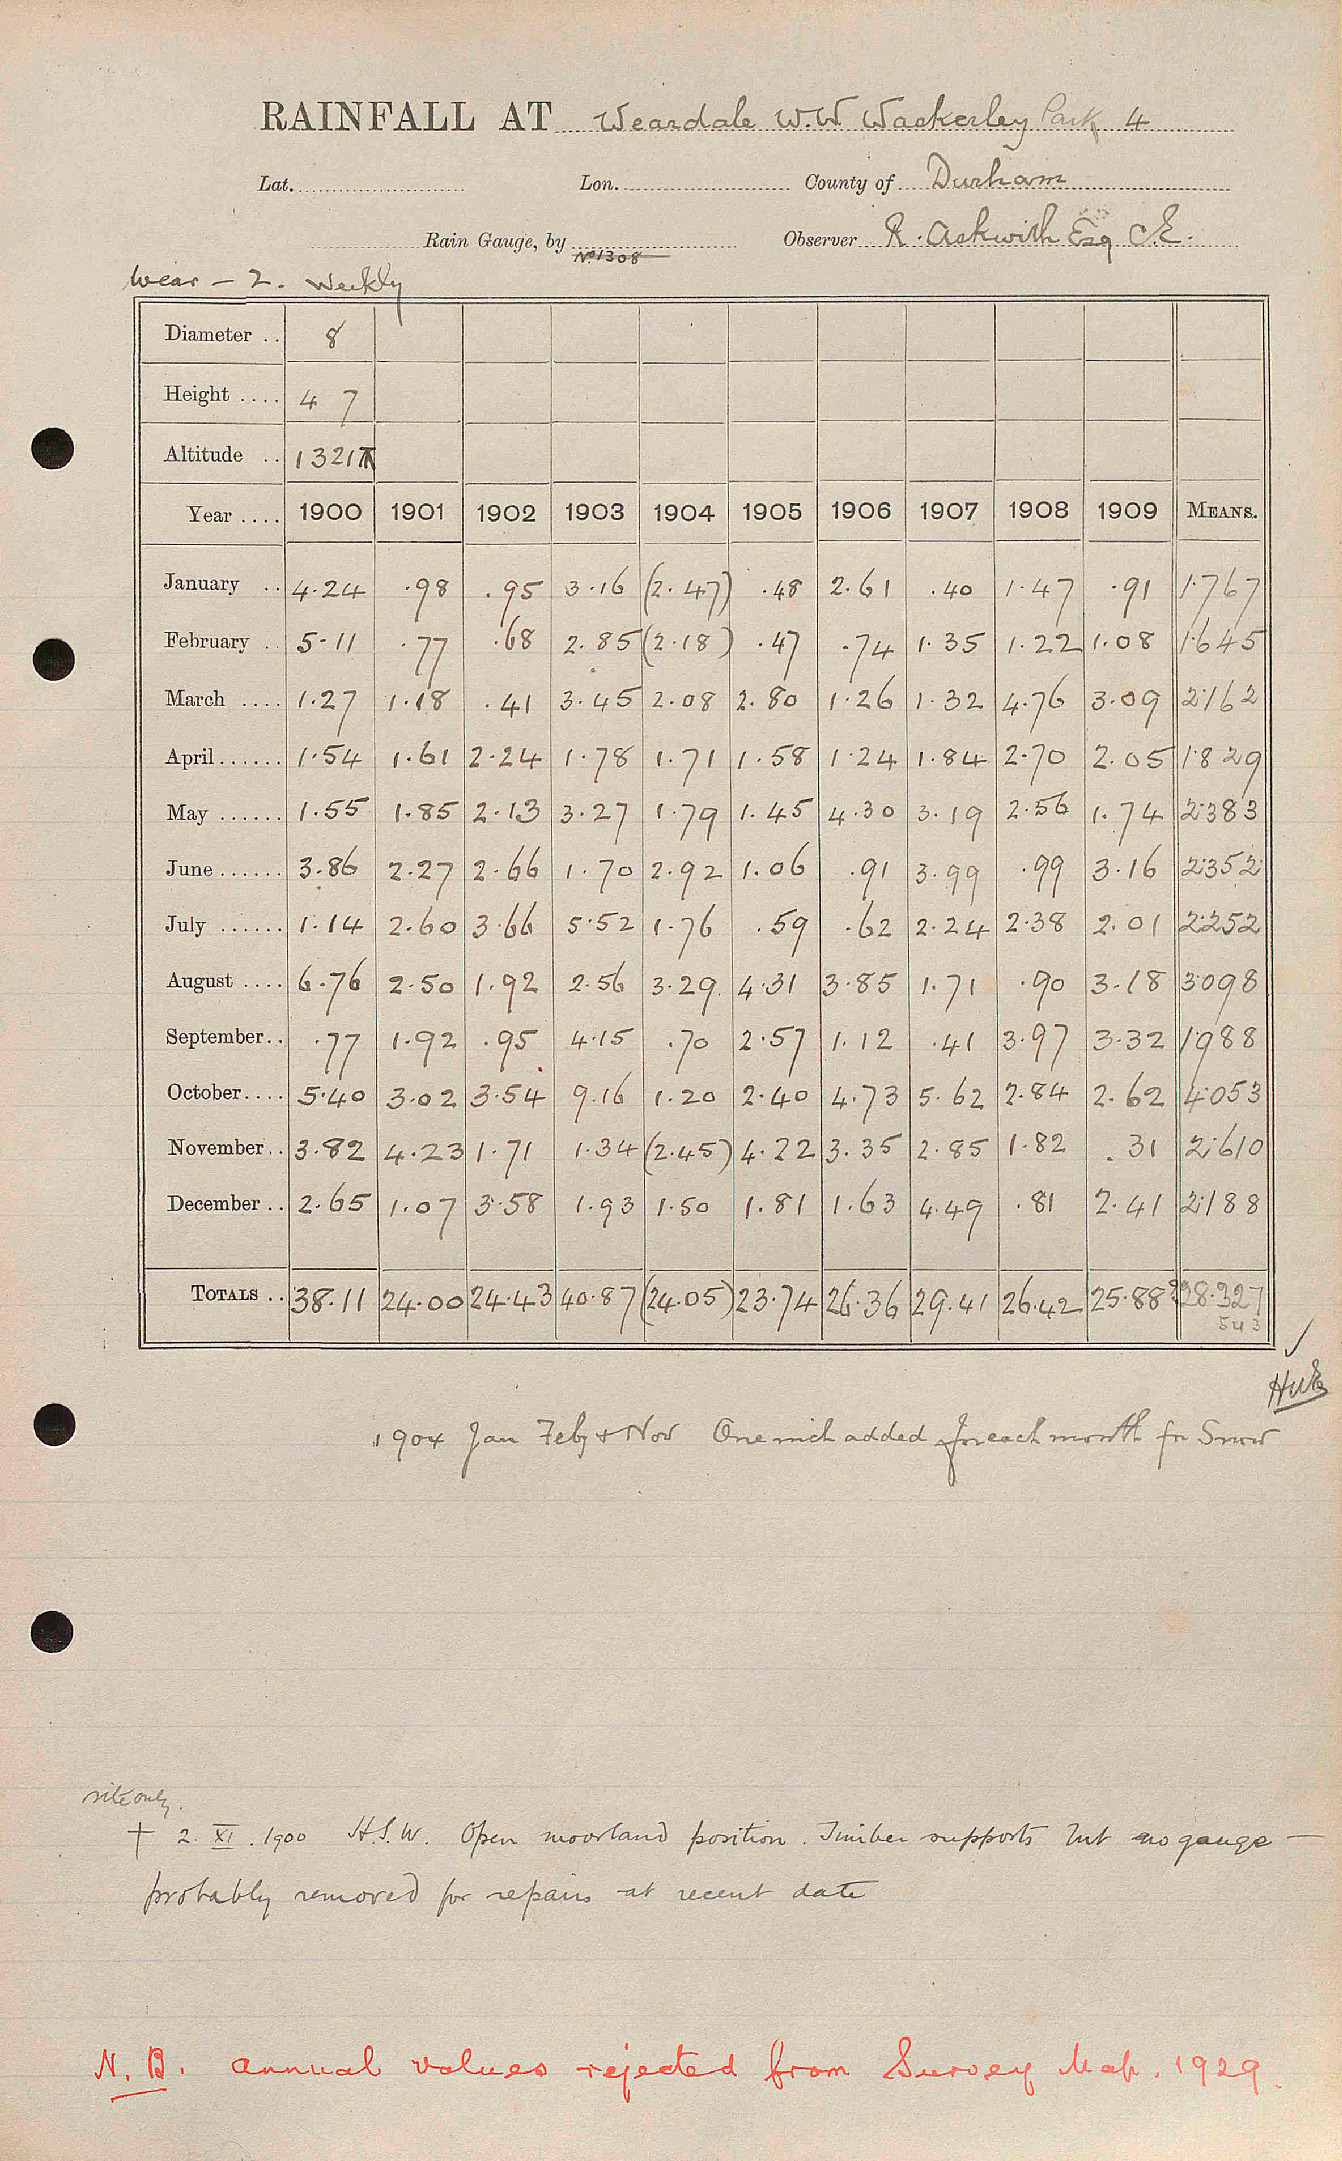 RAINFALL AT Weardale W.W Waskerley Park 4
Lat. Lon. County of Durham
Rain Gauge, by No 1308 Observer R. Askwith Esq C.E.
Wear - 2. Weekly
Diameter .. 8
Height .... 4 7
Altitude .. 1321
Year .... 1900 1901 1902 1903 1904 1905 1906 1907 1908 1909 MEANS.
January .. 4.24 .98 .95 3.16 (2.47) .48 2.61 .40 1.47 .91 1.767
February .. 5.11 .77 .68 2.85 (2.18) .47 .74 1.35 1.22 1.08 1.645
March .... 1.27 1.18 .41 3.45 2.08 2.80 1.26 1.32 4.76 3.09 2.162
April ...... 1.54 1.61 2.24 1.78 1.71 1.58 1.24 1.84 2.70 2.05 1.829
May ...... 1.55 1.85 2.13 3.27 1.79 1.45 4.30 3.19 2.56 1.74 2.383
June ...... 3.86 2.27 2.66 1.70 2.92 1.06 .91 3.99 .99 3.16 2.352
July ...... 1.14 2.60 3.66 5.52 1.76 .59 .62 2.24 2.38 2.01 2.252
August .... 6.76 2.50 1.92 2.56 3.29 4.31 3.85 1.71 .90 3.18 3.098
September .. .77 1.92 .95 4.15 .70 2.57 1.12 .41 3.97 3.32 1.988
October .... 5.40 3.02 3.54 9.16 1.20 2.40 4.73 5.62 2.84 2.62 4.053
November .. 3.82 4.23 1.71 1.34 (2.45) 4.22 3.35 2.85 1.82 .31 2.610
December .. 2.65 1.07 3.58 1.93 1.50 1.81 1.63 4.49 .81 2.41 2.188
TOTALS .. 38.11 24.00 24.43 40.87 (24.05) 23.74 26.36 29.41 26.42 25.88 28.327
543
1904 Jan Feby & Nov One inch added for each month for Snow
site only.
† 2. XI. 1900 H.S.W. Open moorland position. Timber supports but no gauge —
probably removed for repairs at recent date
N.B. annual values rejected from Survey Map. 1929.